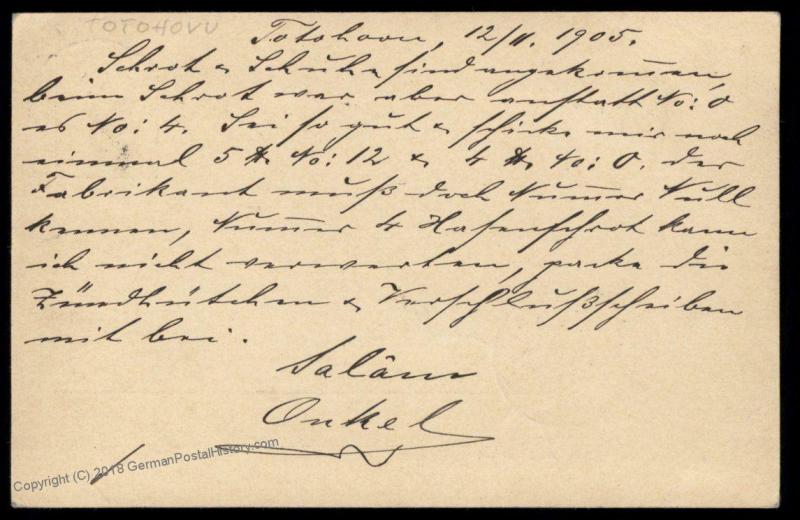 TOTOHOVU
Totohovu, 12/11. 1905.
Schrot & Schuhe sind angekommen,
beim Schrot war aber anstatt No: 0
es No: 4. Sei so gut & schicke mir noch
einmal 5 ℔ No: 12 & 4 ℔ No: 0. der
Fabrikant muß doch Nummer Null
kennen, Nummer 4 Hasenschrot kann
ich nicht verwerten, packe die
Zündhütchen & Verschlußscheiben
mit bei.
Salâm
Onkel
Copyright (C) 2018 GermanPostalHistory.com